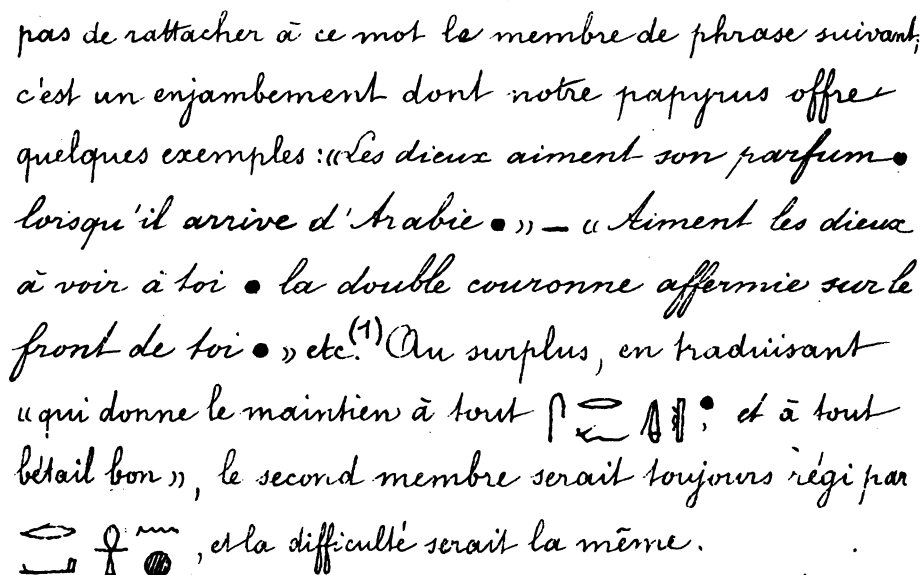 pas de rattacher à ce mot le membre de phrase suivant;
c'est un enjambement dont notre papyrus offre
quelques exemples : «Les dieux aiment son parfum •
lorsqu'il arrive d'Arabie • » — « Aiment les dieux
à voir à toi • la double couronne affermie sur le
front de toi • » etc.(1) Au surplus, en traduisant
« qui donne le maintien à tout 𓋴𓂋 ; et à tout
bétail bon », le second membre serait toujours régi par
𓂋𓋹𓈖𓂝𓐍, et la difficulté serait la même.